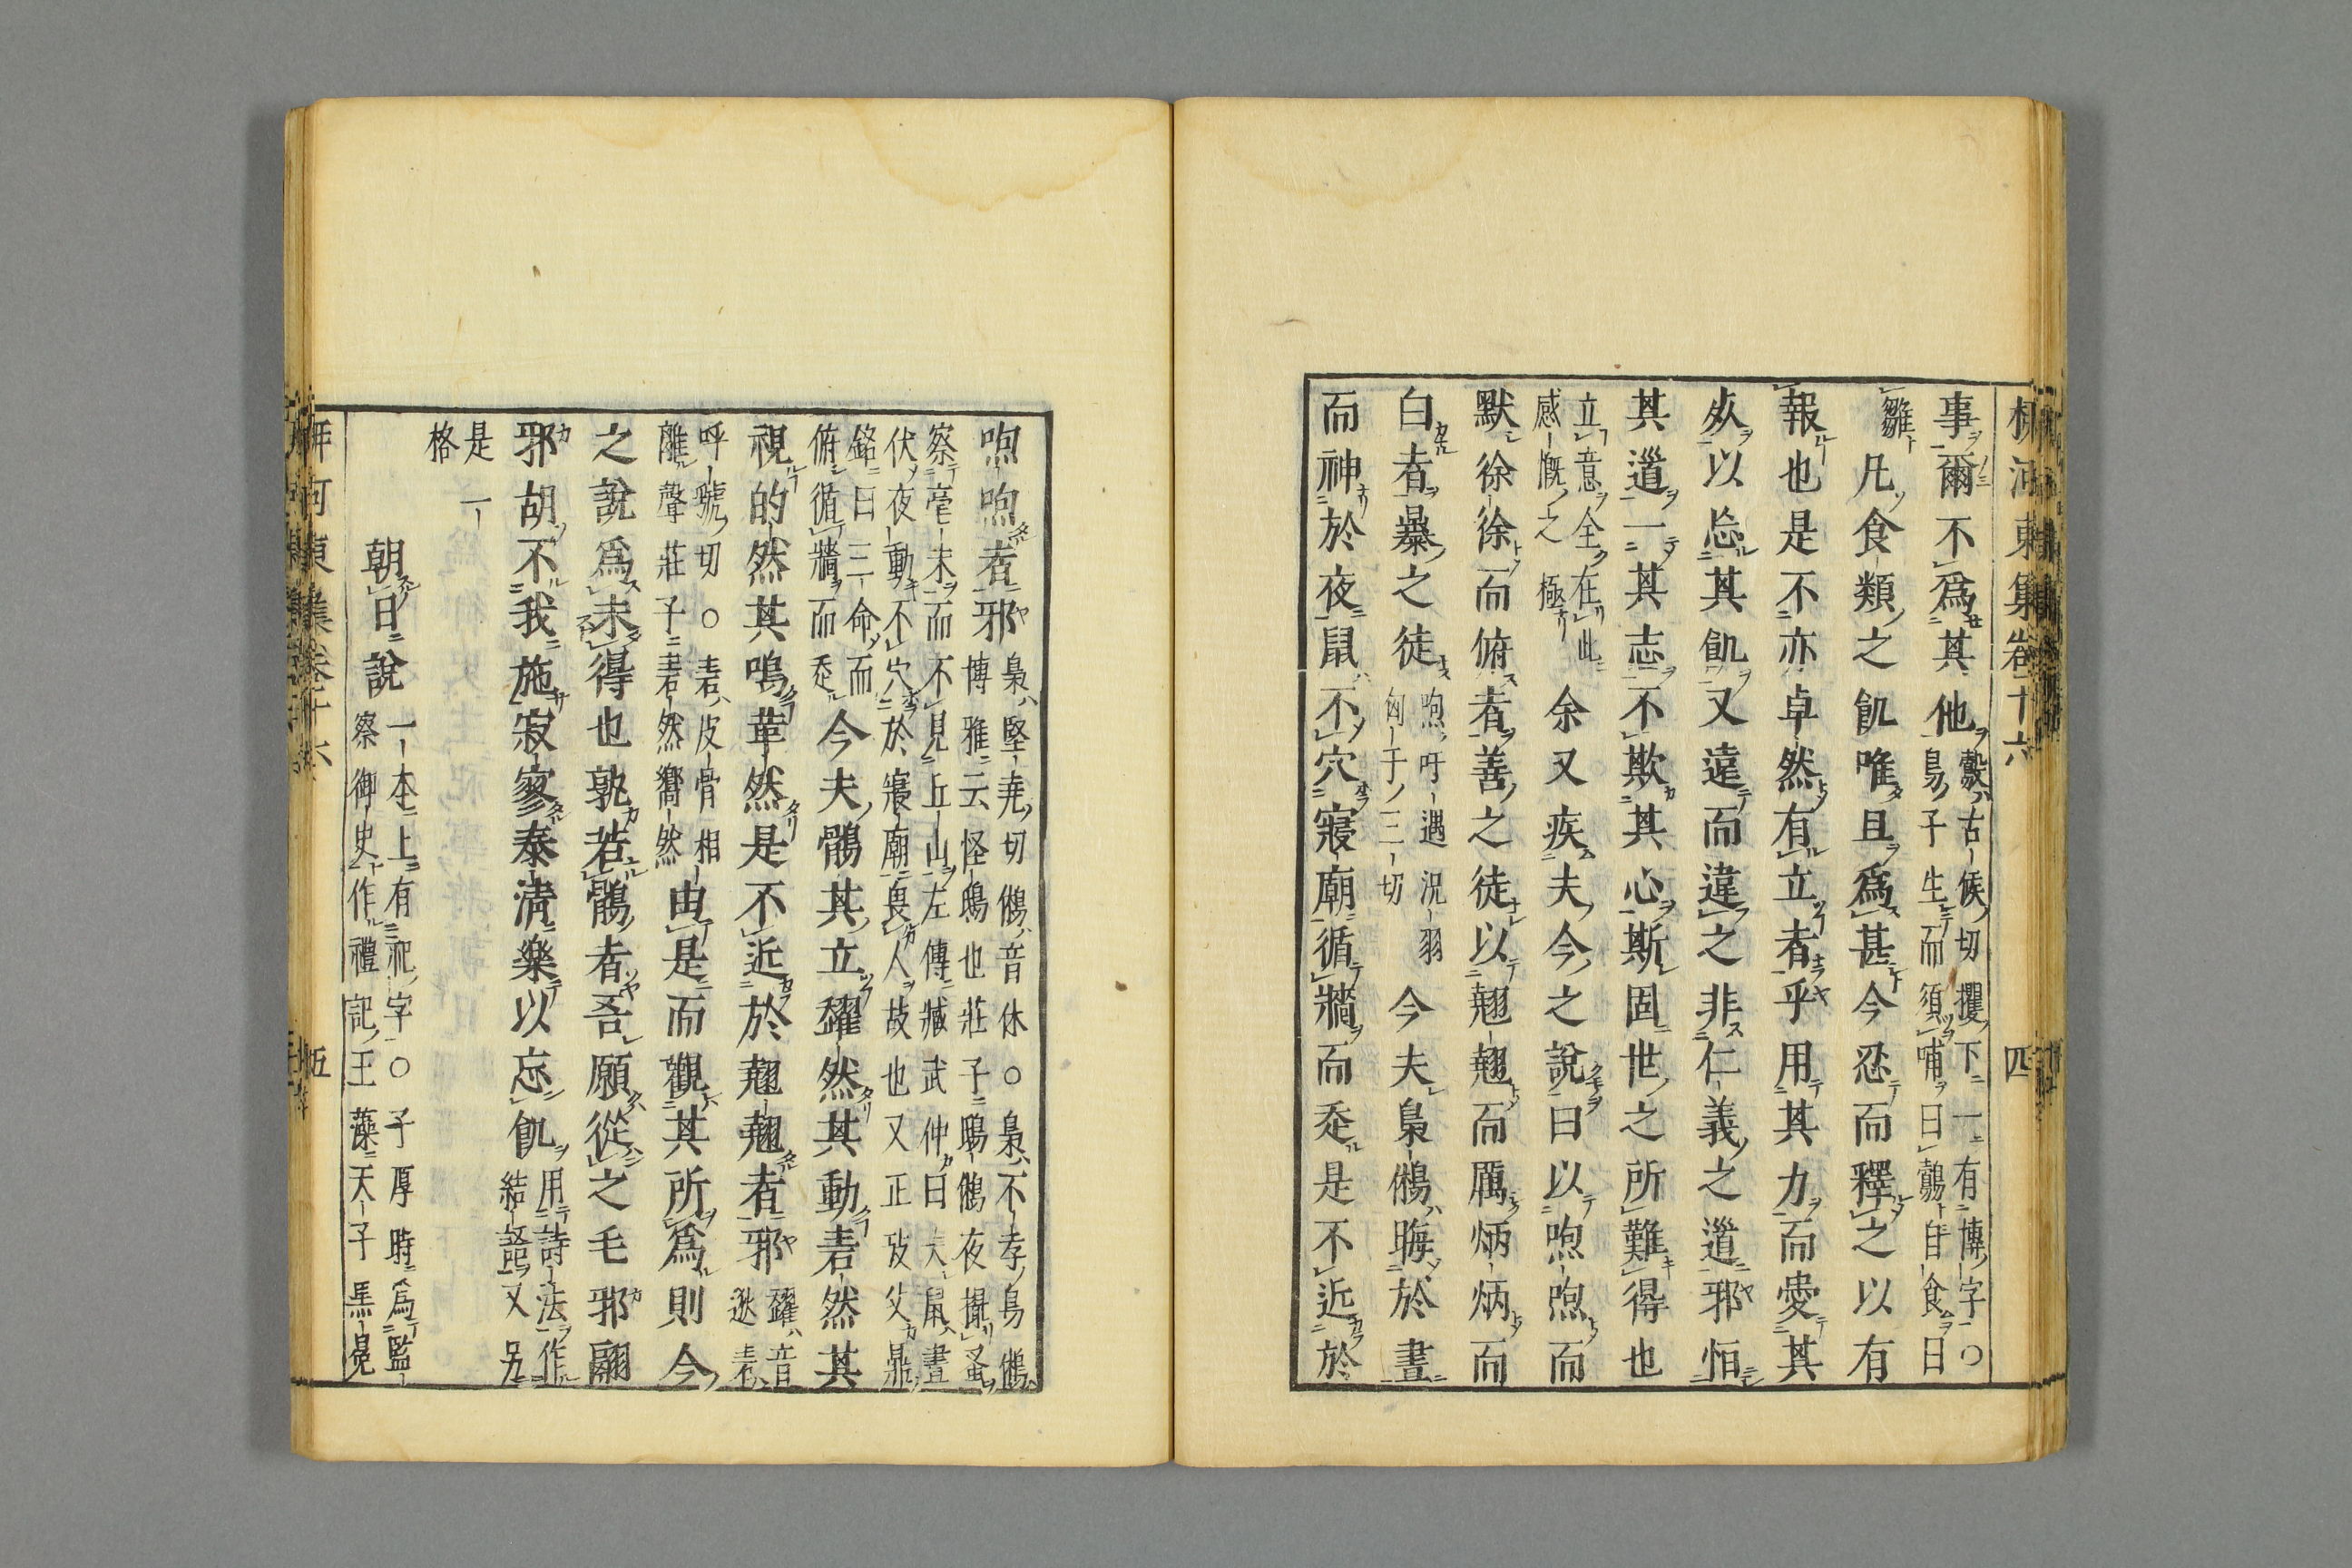 柳河東集卷十六 四
事爾不爲其他鷇古候切攫下一有博字○
鳥子生而須哺曰鷇自食曰
雛凡食類之飢唯且爲甚今忍而釋之以有
報也是不亦卓然有立者乎用其力而愛其
死以忘其飢又遠而違之非仁義之道邪恒
其道一其志不欺其心斯固世之所難得也
立意全在此
感慨之極余又疾夫今之說曰以喣喣而
默徐徐而俯者善之徒以翹翹而厲炳炳而
白者暴之徒喣吁遇況羽
匈于二切今夫梟鵂晦於晝
而神於夜鼠不穴寢廟循牆而走是不近於
喣喣者邪梟堅堯切鵂音休○梟不孝鳥鵂
博雅云怪鴟也莊子鴟鵂夜撮蚤
察毫末而不見丘山左傳臧武仲曰夫鼠晝
伏夜動不穴於寢廟畏人故也又正攷父鼎
銘曰三命而
俯循牆而走今夫鶻其立趯然其動砉然其
視的然其鳴革然是不近於翹翹者邪趯音
逖砉
呼虢切○砉皮骨相
離聲莊子砉然嚮然由是而觀其所爲則今
之說爲未得也孰若鶻者吾願從之毛邪翮
邪胡不我施寂寥泰清樂以忘飢用詩法作
結語又另
是一
格
朝日說一本上有祀字○子厚時爲監
察御史作禮記王藻天子黑冕
柳河東集卷十六 五